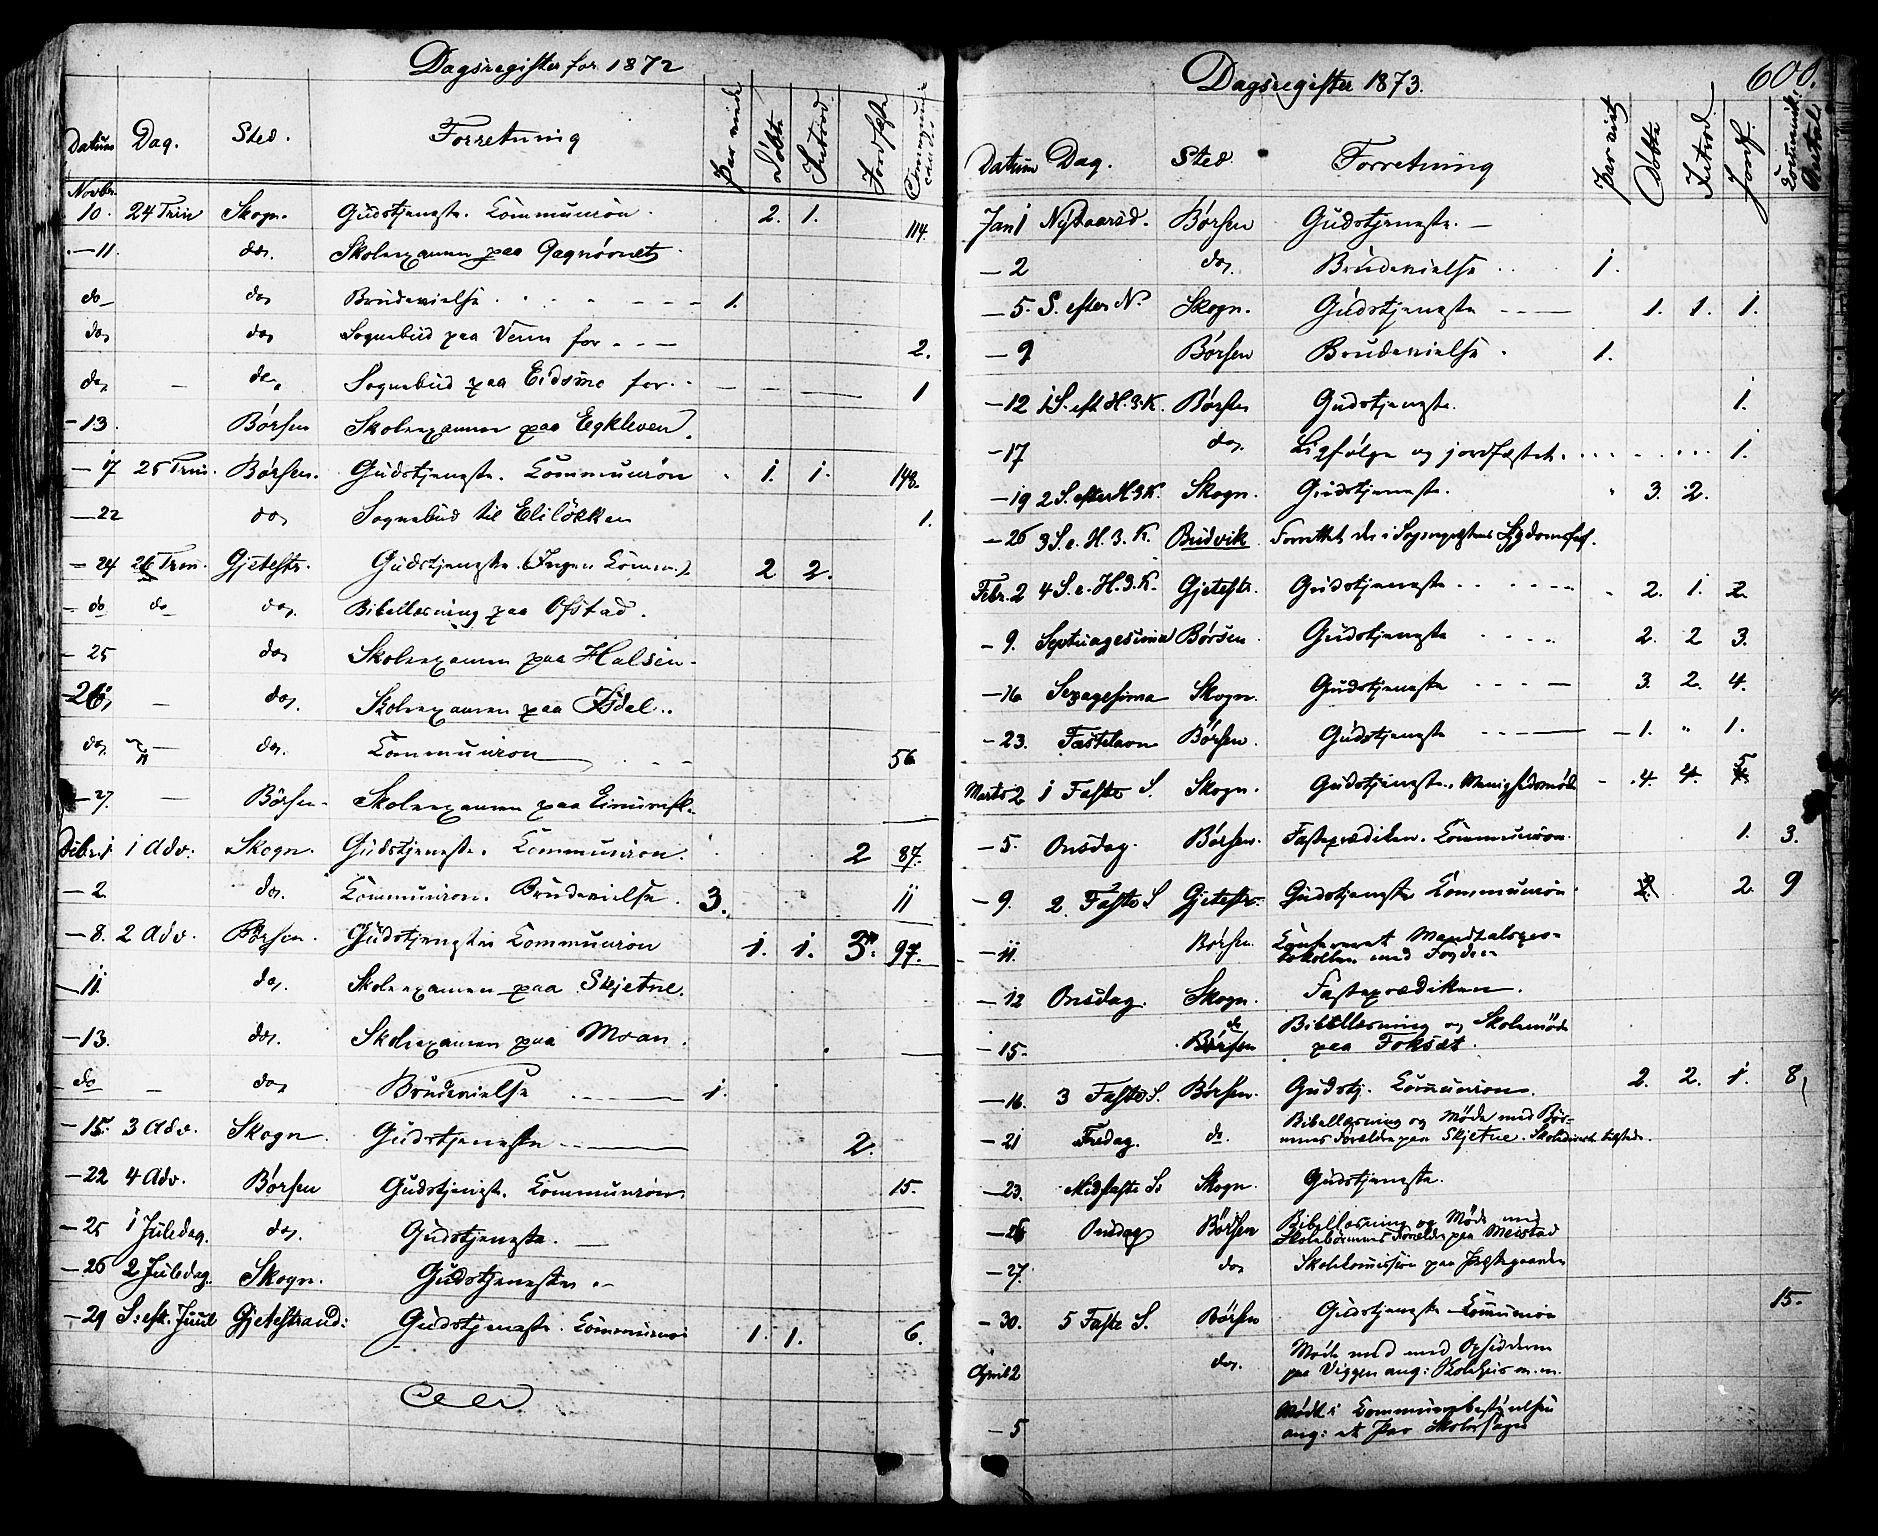 Dagsregister for 1872
Datum Dag. Sted. Forretning Par viede Døbte Introd Jordfæste Communicanter
Novbr.
10. 24 Trin Skogn. Gudstjeneste. Communion. 2. 1. 114.
- 11. do. Skoleexamen paa
do - do. Brudevielse 1.
do. do. Sognebud paa Venn for - - - 2.
do. - do. Sognebud paa Eidsmo for - - - 1
- 13. Børsen Skoleexamen paa Egkleven.
- 17 25 Trin. Børsen. Gudstjeneste. Communion 1. 1. 148.
- 22 do. Sognebud til Eliløkken 1.
- 24 26 Trin. Gjetestr. Gudstjeneste. (Ingen Comm.) 2 2.
- do do do. Bibellæsning paa Ofstad.
- 25 do. Skoleexamen paa Halsen -
- 26, - do. Skoleexamen paa
do. " - do. Communion 56
- 27. - Børsen - Skoleexamen paa
Debr. 1 1 Adv: Skogn. Gudstjeneste. Communion. 2 87.
- 2. do. Communion. Brudevielse. 3. 11
- 8. 2 Adv. Børsen. Gudstjeneste Communion 1. 1. 3. 97.
- 11. do. Skoleexamen paa Skjetne.
- 13. do. Skoleexamen paa Moan.
do - do. Brudevielse - - - 1.
- 15. 3 Adv. Skogn. Gudstjeneste - - - 2.
- 22 4 Adv. Børsen Gudstjeneste. Communion. 15.
- 25 1 Juledag. do. Gudstjeneste. -
- 26 2 Juledag. Skogn. Gudstjeneste. -
- 29 S: eft. Juul Gjetestrand: Gudstjeneste. Communion 1. 1. 6.
Dagsregister 1873. 600.
Datum Dag. Sted. Forretning Par viet Døbte Introd. Jordf. Communik. Antal
Jan 1 Nytaarsd. Børsen Gudstjeneste. -
- 2 do. Brudevielse 1.
- 5. S. efter N. Skogn. Gudstjeneste - - - 1. 1. 1.
- 9 Børsen Brudevielse. 1.
- 12 1 S. eft H. 3. K. Børsen Gudstjeneste. 1.
- 17 do. Ligfølge og jordfæstet. 1.
- 19 2 S. efter H. 3 K. Skogn. Gudstjeneste. " 3. 2.
- 26 3 S. e. H. 3. K. Budvik Forrettet der i Sognepræstens Sygdomsfof.
Febr. 2 4 S. e. H. 3. K. Gjetestr. Gudstjeneste - - - 2. 1. 2.
- 9. Septuagesima Børsen. Gudstjeneste - - - 2. 2 3.
- 16 Sexagesima Skogn. Gudstjeneste - - - 3. 2. 4.
- 23. Fastelavn Børsen. Gudstjeneste - - - 1. " 1.
Marts 2 1 Faste S. Skogn. Gudstjeneste. Menighedsmøde 4. 4. 5
- 5. Onsdag. Børsen. Fasteprædiken. Communion. 1. 3.
- 9. 2. Faste S Gjetestr. Gudstjeneste Communion 2. 2. 9
- 11. Børsen Confereret Mandtalspro-
tokollen med Fogden
- 12 Onsdag. Skogn. Fasteprædiken.
- 15. do Børsen Bibellæsning og Skolemøde
paa
- 16. 3 Faste S. Børsen. Gudstj. Communion. 2. 2. 1. 8,
- 21 Fredag. do. Bibellæsning og Møde med Bør-
nenes Forældre paa Skjetne. tilstede.
- 23. Midfaste S: Skogn. Gudstjeneste.
- 26 Onsdag Børsen Bibellæsning og Møde med
Skolebørnenes Forældre paa Meistad
- 27. do Skolekomission paa Præstegaarden
- 30. 5 Faste S. Børsen Gudstjeneste Communion 15.
April 2 do. Møde med Opsidderne
paa Viggen ang: m. m.
- 5 Mødt i Communebestyrelsen
ang: et Par Skolesager